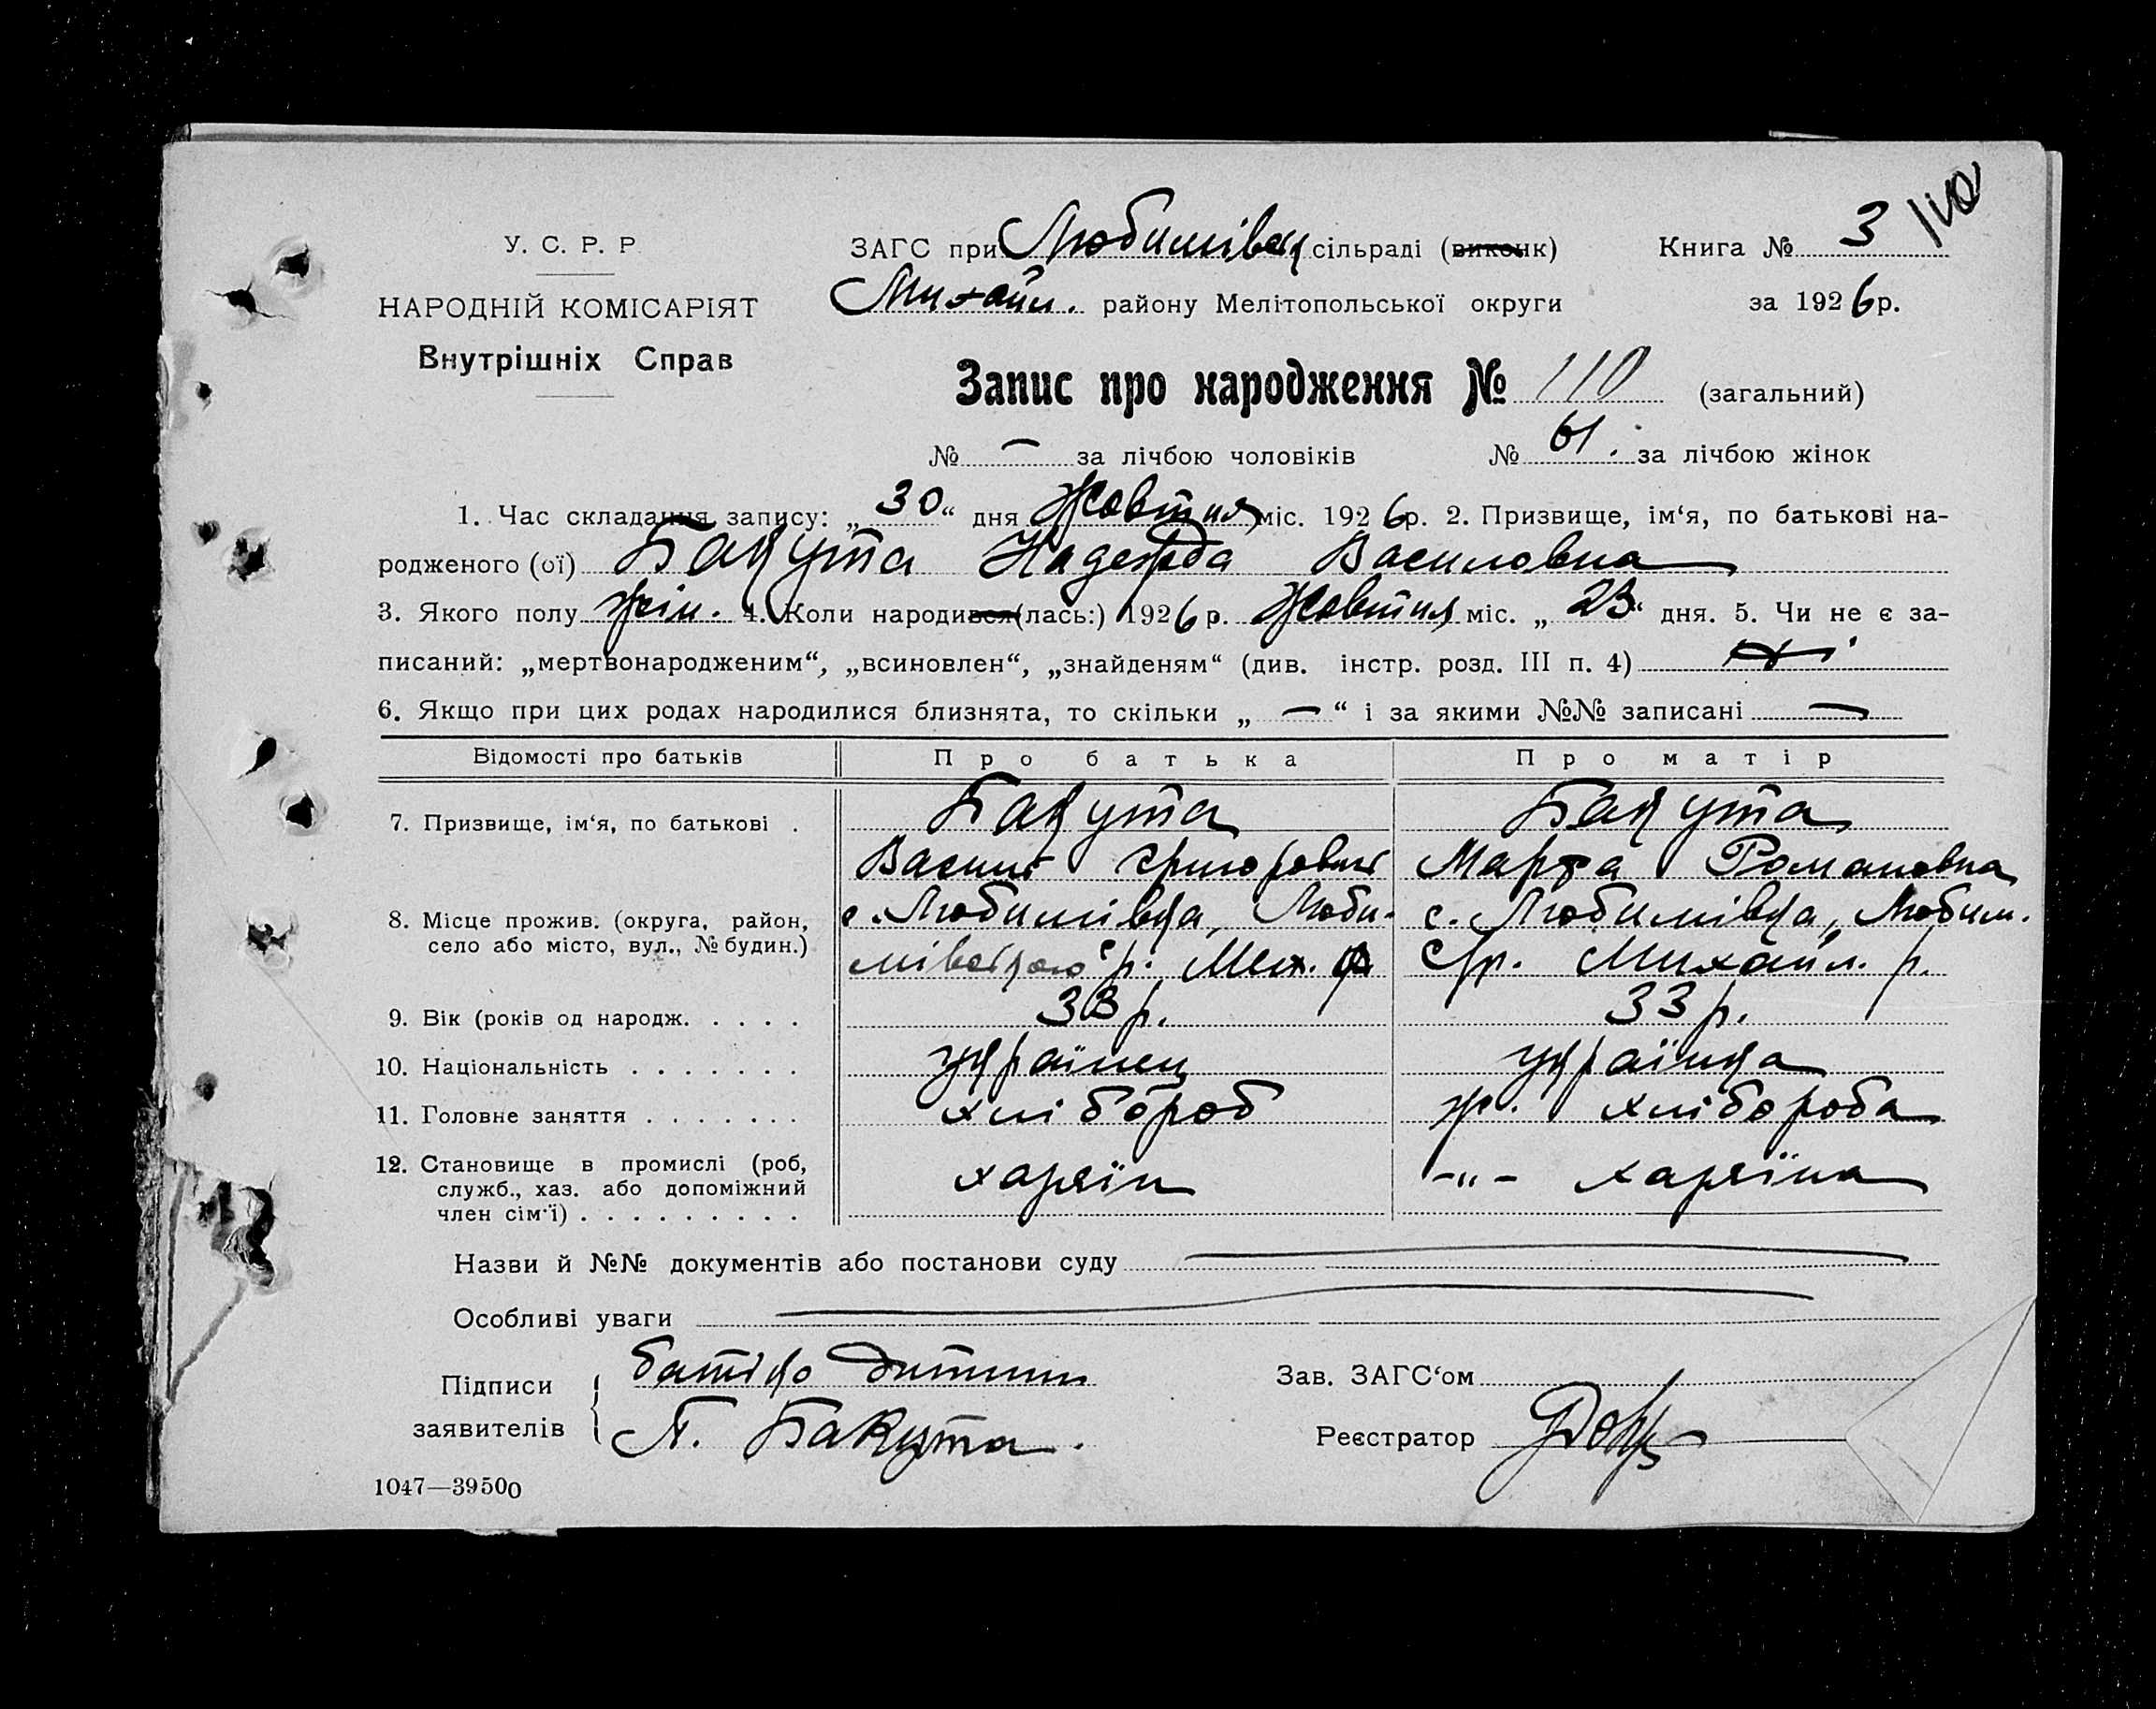 110
У. С. Р. Р.
НАРОДНІЙ КОМІСАРІЯТ
Внутрішніх Справ
ЗАГС при Любимівск сільраді (виконк)
Михайл. району Мелітопольської округи
Книга № 3
за 1926 р.
Запис про народження № 110 (загальний)
№ — за лічбою чоловіків № 61. за лічбою жінок
1. Час складання запису: „30“ дня Жовтня міс. 1926 р. 2. Призвище, ім‘я, по батькові на-
родженого (ої) Бакута Надежда Василовна
3. Якого полу жін. 4. Коли народився (лась:) 1926 р. Жовтня міс. „23“ дня. 5. Чи не є за-
писаний: „мертвонародженим“, „всиновлен“, „знайденям“ (див. інстр. розд. III п. 4) ні
6. Якщо при цих родах народилися близнята, то скільки „ — “ і за якими №№ записані —
Відомості про батьків Про батька Про матір
7. Призвище, ім‘я, по батькові . Бакута Бакута
Василь Григорович Марфа Романовна
8. Місце прожив. (округа, район, с. Любимівка, Люби- с. Любимівка, Любим.
село або місто, вул., № будин.) мівської с/р. Мих. р с/р. Михайл. р.
9. Вік (років од народж. . . . . 33 р. 33 р.
10. Національність . . . . . . . українец українка
11. Головне заняття . . . . . . . хлібороб ж. хлібороба
12. Становище в промислі (роб, хазяїн -„- хазяїна
служб., хаз. або допоміжний
член сім‘ї) . . . . . . . . .
Назви й №№ документів або постанови суду
Особливі уваги
Підписи батько дитини
заявителів Бакута.
Зав. ЗАГС‘ом
Реєстратор
1047—39500